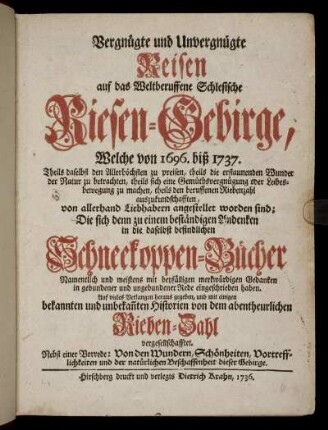 Vergnügte und Unvergnügte
Reisen
auf das Weltberuffene Schlesische
Riesen-Gebirge,
Welche von 1696. biß 1737.
Theils daselbst den Allerhöchsten zu preisen, theils die erstaunenden Wunder
der Natur zu betrachten, theils sich eine Gemüthsvergnügung oder Leibes-
bewegung zu machen, theils den beruffenen Riebenzahl
auszukundschafften,
von allerhand Liebhabern angestellet worden sind;
Die sich denn zu einem beständigen Andencken
in die daselbst befindlichen
Schneekoppen-Bücher
Namentlich und meistens mit beyfälligen merckwürdigen Gedancken
in gebundener und ungebundener Rede eingeschrieben haben.
Auf vieles Verlangen heraus gegeben, und mit einigen
bekannten und unbekañten Historien von dem abentheurlichen
Rieben-Zahl
vergesellschafftet.
Nebst einer Vorrede: Von den Wundern, Schönheiten, Vortreff-
lichkeiten und der natürlichen Beschaffenheit dieser Gebirge.
Hirschberg druckt und verlegts Dietrich Krahn, 1736.